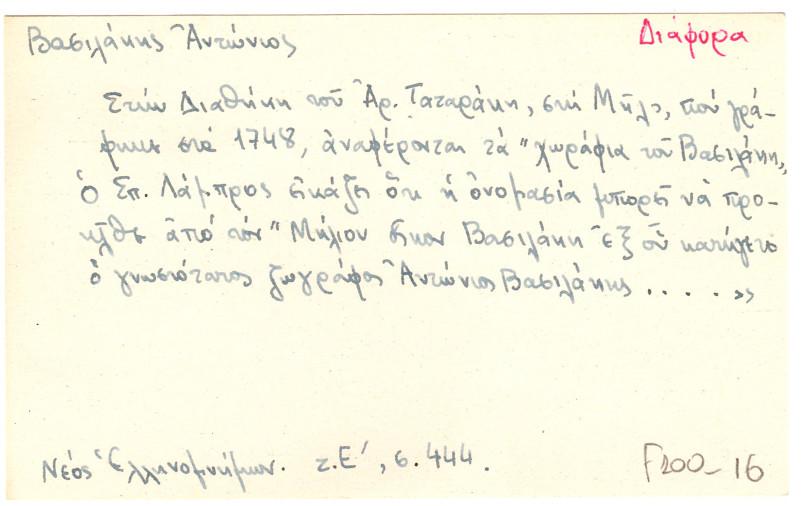 Βασιλάκης Ἀντώνιος
Διάφορα
Στήν Διαθήκη τοῦ Ἀρ. Ταταράκη, στή Μῆλο, πού γρά-
φηκε στά 1748, ἀναφέρονται τά "χωράφια τοῦ Βασιλάκη„
ὁ Σπ. Λάμπρος εἰκάζει ὅτι ἡ ὀνομασία μπορεῖ νὰ προ-
ῆλθε ἀπό τόν "Μήλιον οἶκον Βασιλάκη ἐξ οὗ κατήγετο
ὁ γνωστότατος ζωγράφος Ἀντώνιος Βασιλάκης . . . . »
Νέος Ἑλληνομνήμων. τ. Ε', σ. 444.
F200-16